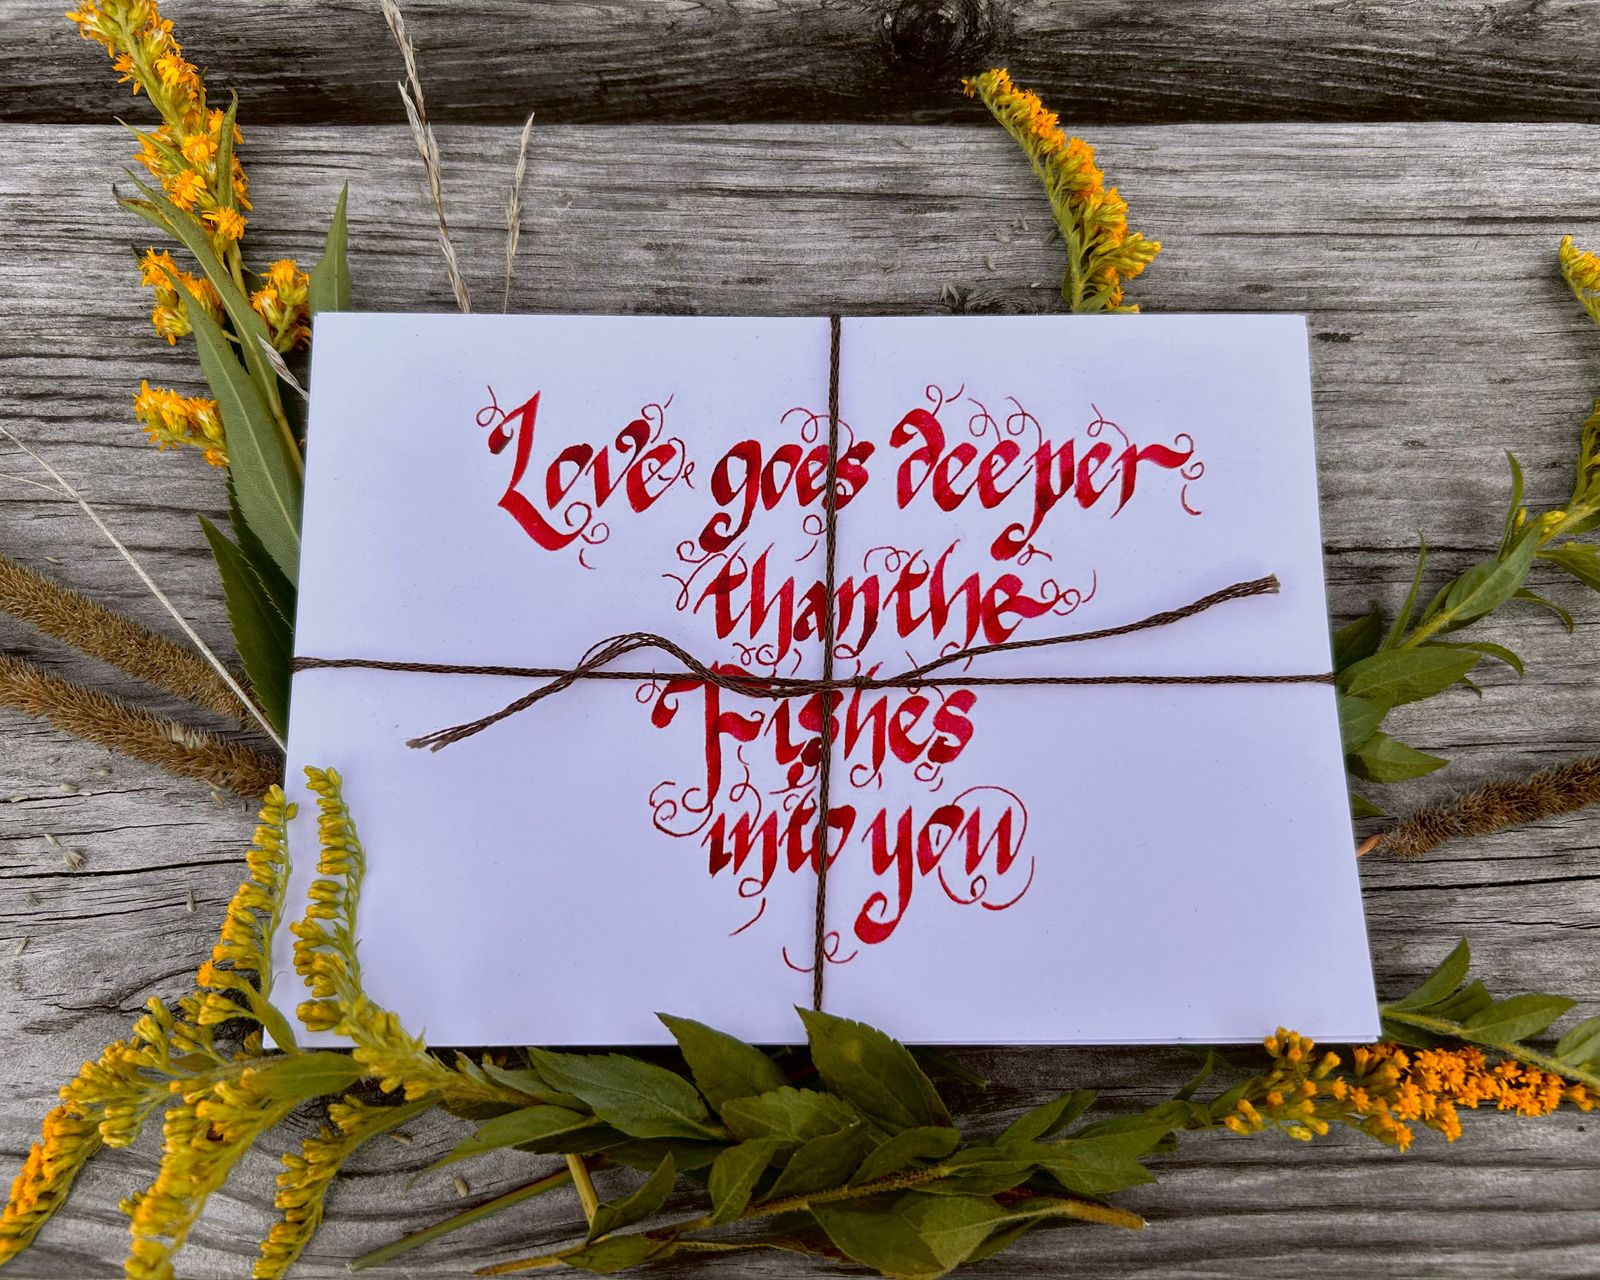 Love goes deeper
than the
Fishes
into you